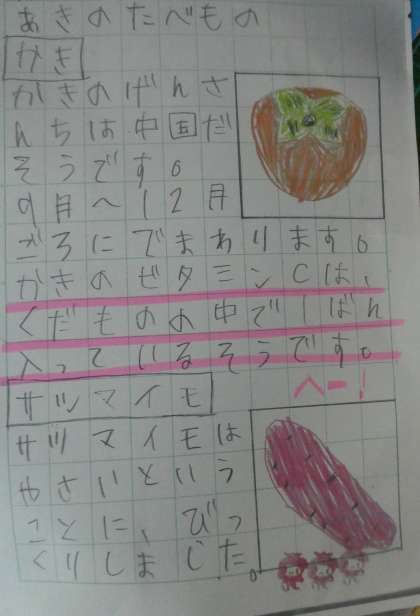 あきのたべもの
かき
かきのげんさ
んちは中国だ
そうです。
9月〜12月
ごろにでまわります。
かきのビタミンCは、
くだものの中で1ばん
入っているそうです。
へー!
サツマイモ
サツマイモは
やさいという
ことに、びっ
くりしました。